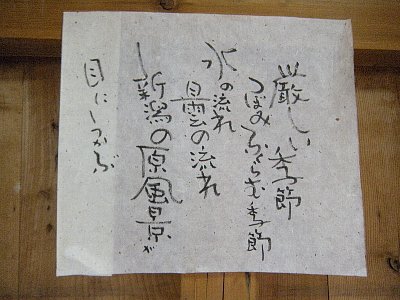 厳しい季節
つぼみふくらむ季節
水の流れ
白雲の流れ
新潟の原風景が
目にうかぶ